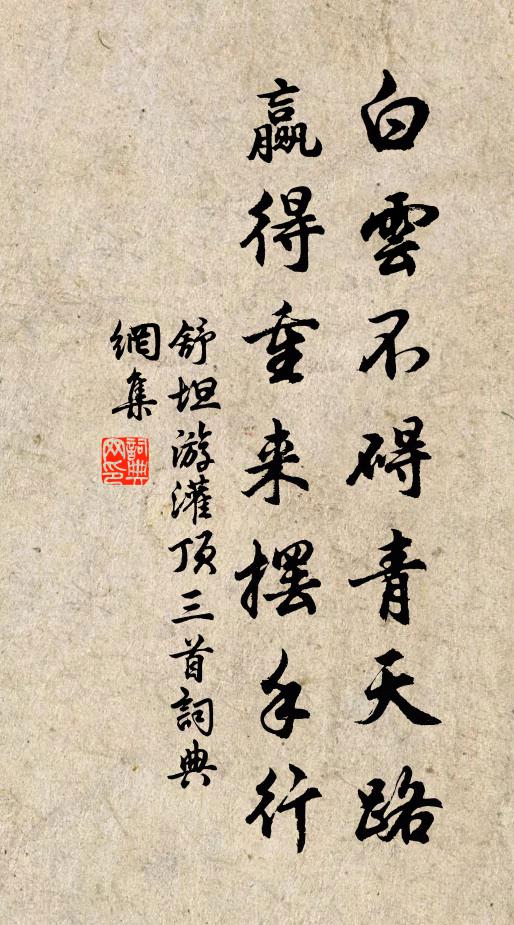 白雲不碍青天路
贏得重来擺手行
舒坦游灌頂三首詞典
網集
詞典网印